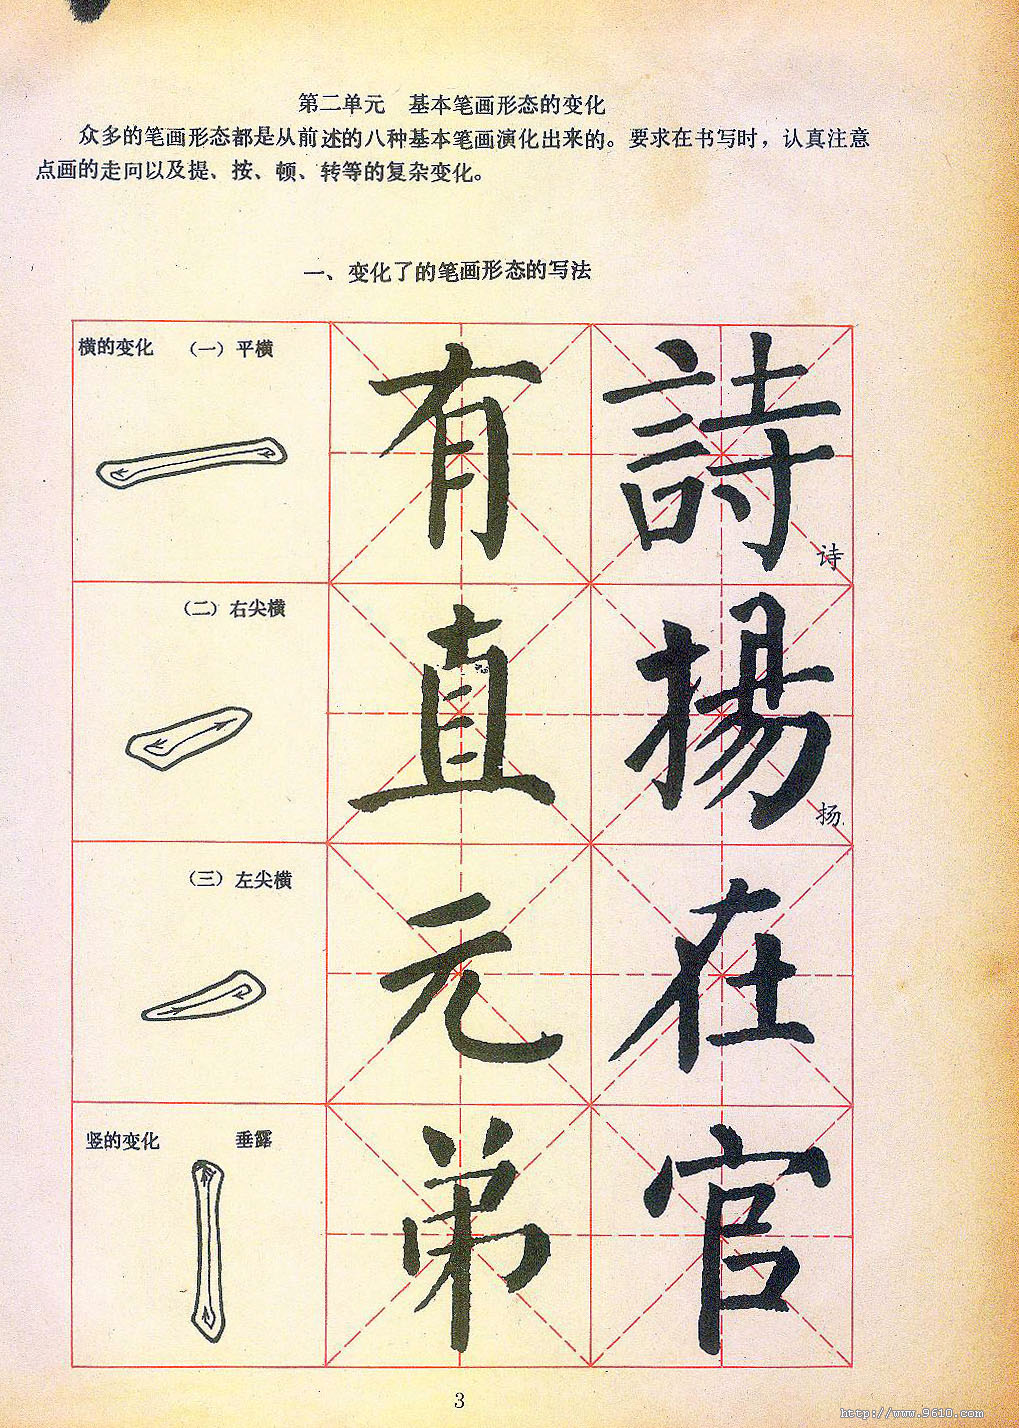 第二单元　基本笔画形态的变化
众多的笔画形态都是从前述的八种基本笔画演化出来的。要求在书写时，认真注意
点画的走向以及提、按、顿、转等的复杂变化。
一、变化了的笔画形态的写法
横的变化　（一）平横
有 詩
诗
（二）右尖横
直 揚
扬
（三）左尖横
元 在
竖的变化　垂露
弟 官
3
http://www.9610.com